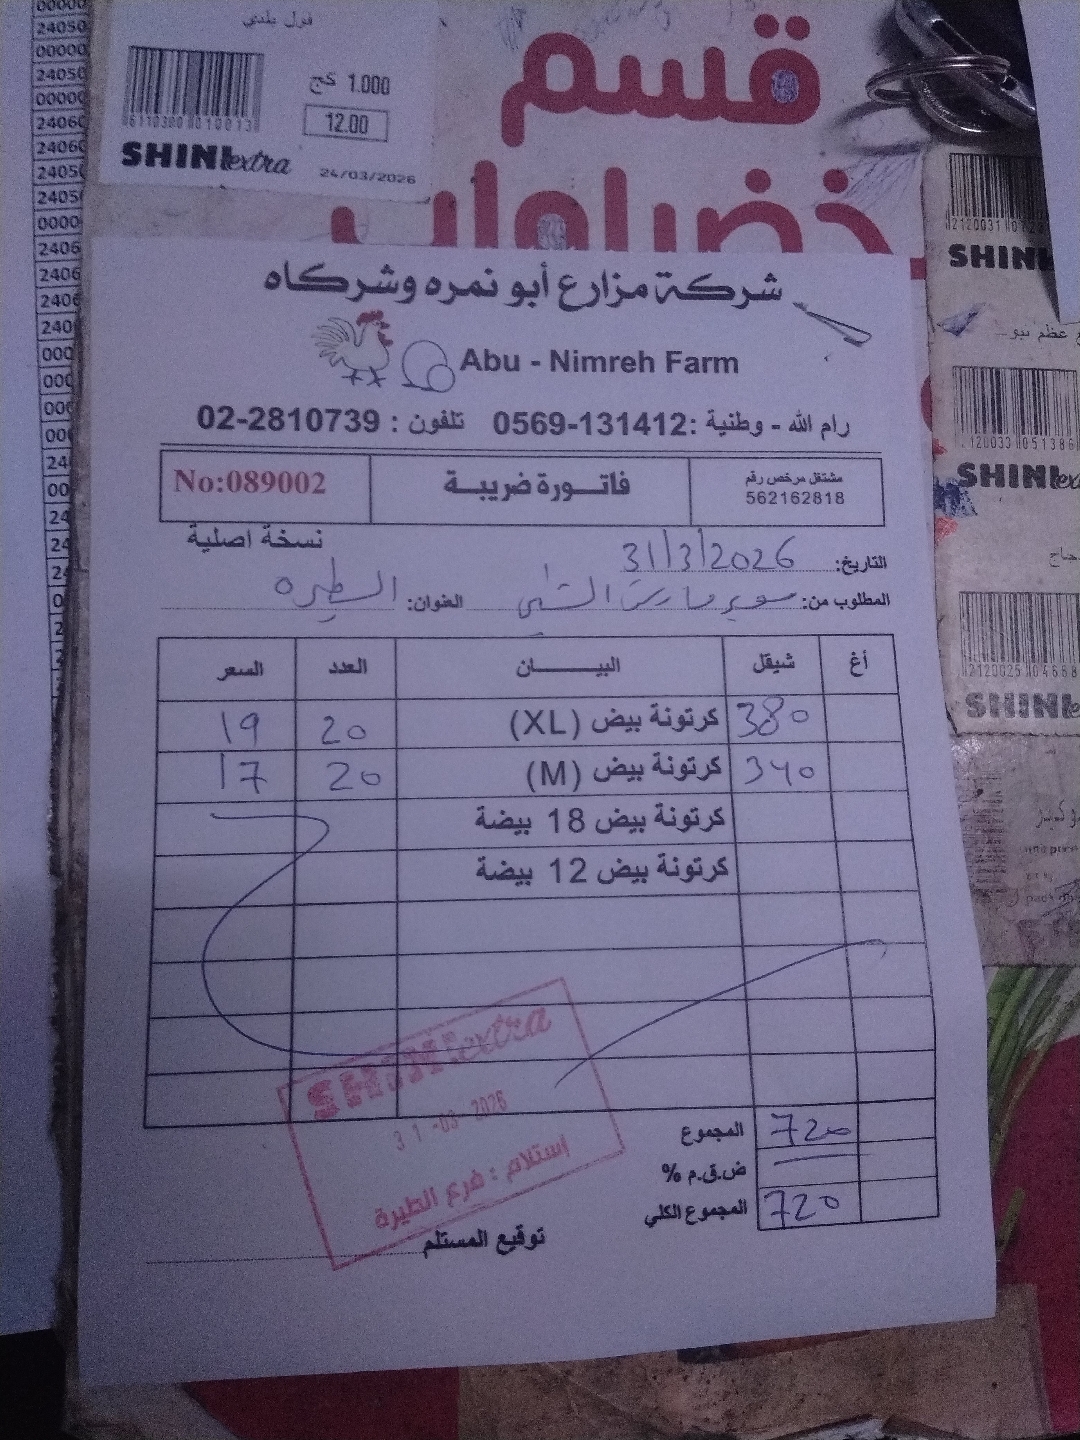 فول بلدي
1.000 كج
12.00
6110300 010013
SHINI extra
24/03/2026
قسم
خضراوات
شركة مزارع أبو نمره وشركاه
Abu - Nimreh Farm
رام الله - وطنية :0569-131412 تلفون : 02-2810739
مشتغل مرخص رقم
562162818
فاتورة ضريبة
No:089002
نسخة اصلية
التاريخ: 31/3/2026
المطلوب من: سوبر مارت الشني العنوان: الطيره
أغ شيقل البيـــان العدد السعر
380 كرتونة بيض (XL) 20 19
340 كرتونة بيض (M) 20 17
كرتونة بيض 18 بيضة
كرتونة بيض 12 بيضة
SHINI extra
31-03-2026
استلام : فرع الطيرة
المجموع 720
ض.ق.م %
المجموع الكلي 720
توقيع المستلم
SHINI
SHINI ex
SHINI